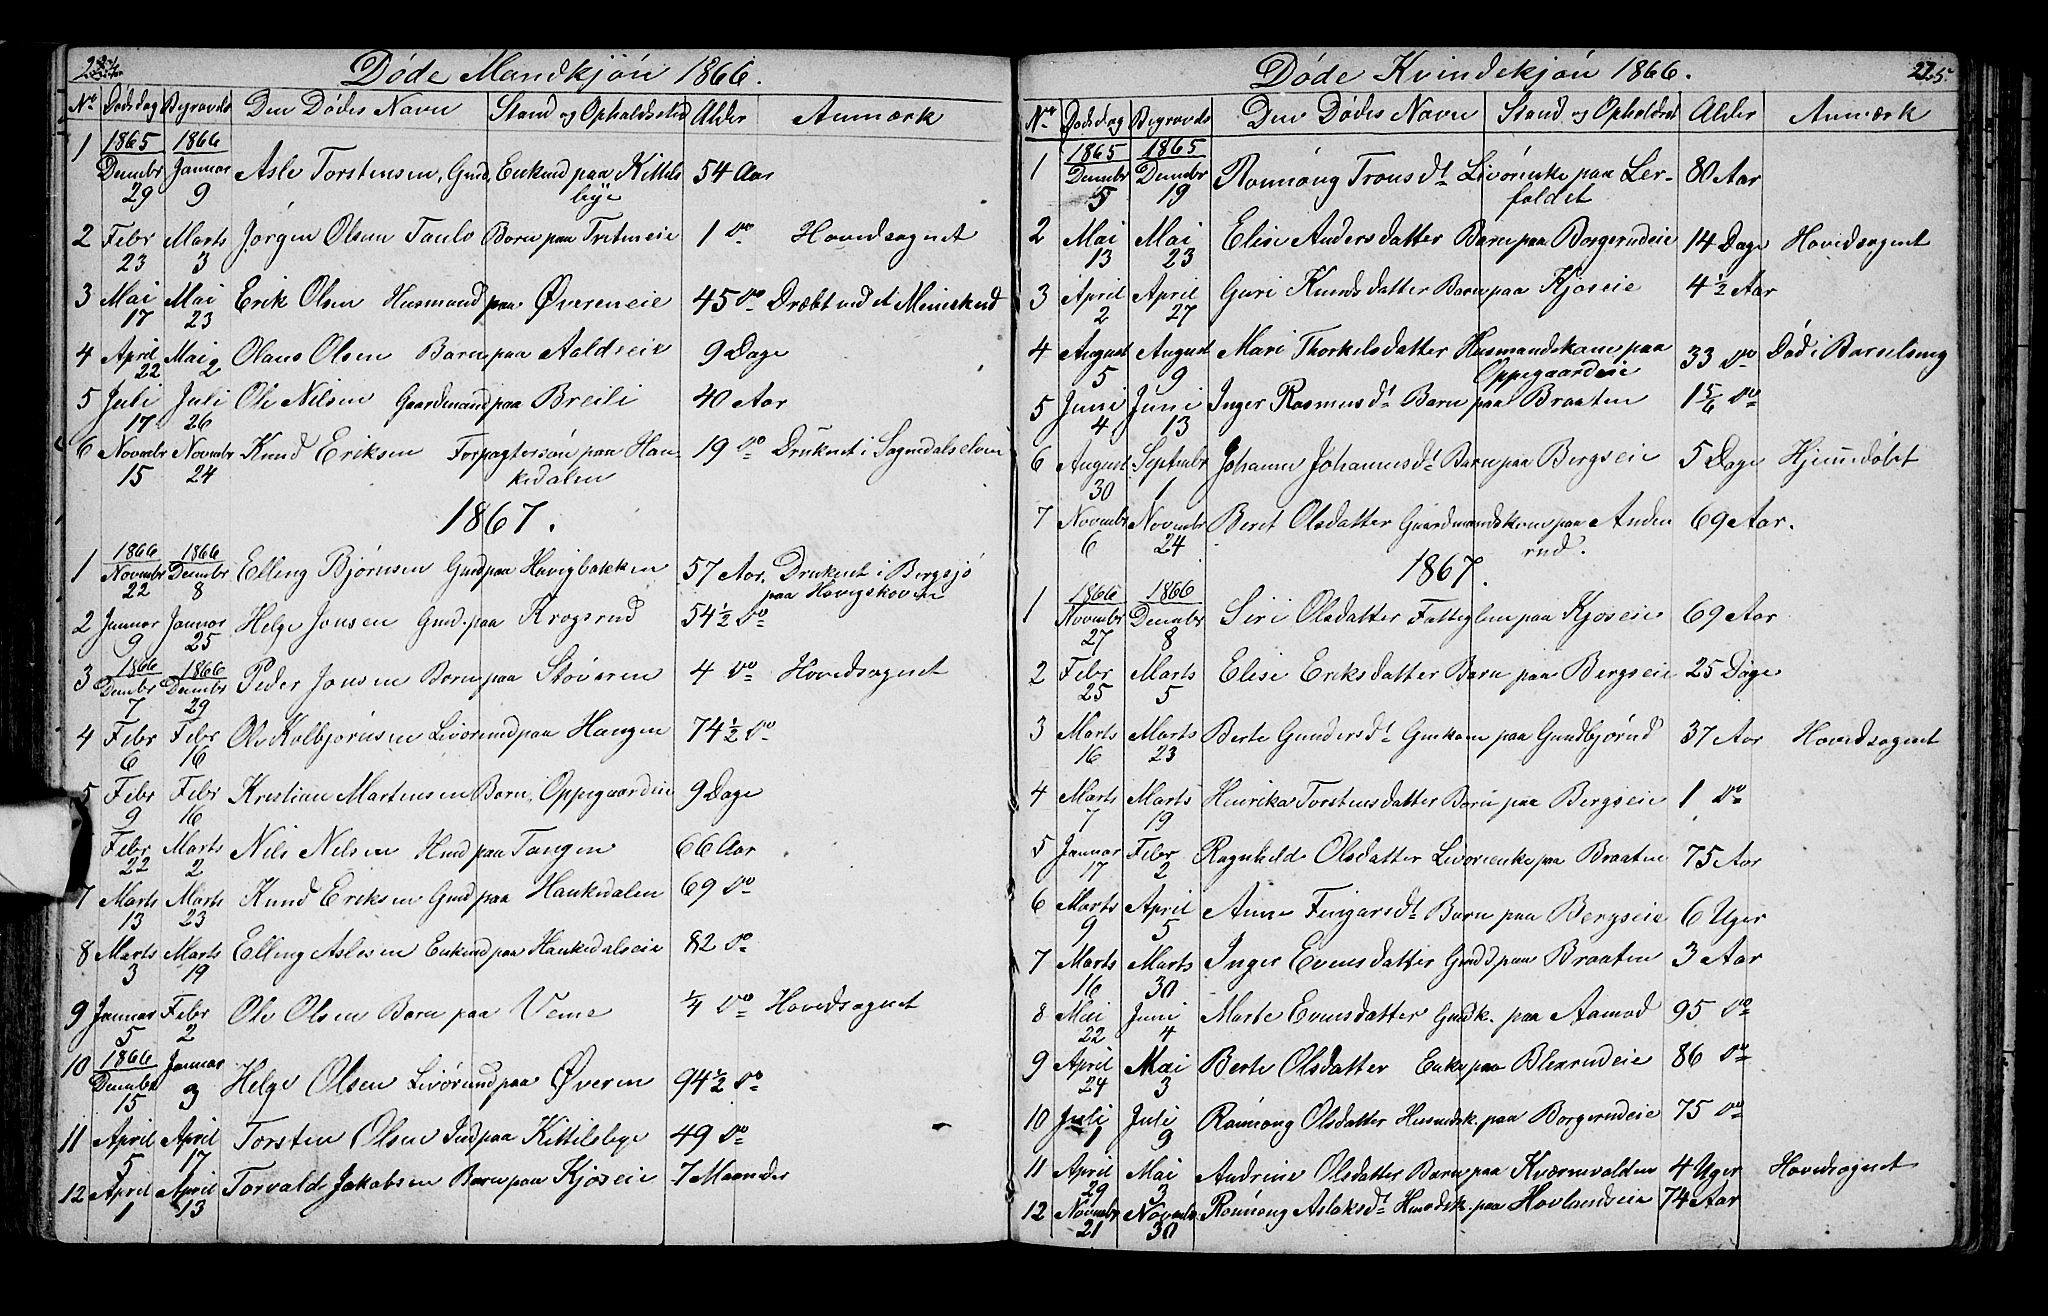 Døde Mandkjøn 1866.
No Dødsdag Begravds Den Dødes Navn Stand og Opholdssted Alder Anmærk
1 1865 Decembr 29 1866 Januar 9 Asle Torstensen, Gmd, Enkmd paa Kittels
bye 54 Aar
2 Febr 23 Marts 3 Jørgen Olsen Barn paa 1 do Hovedsognet
3 Mai 17 Mai 23 Erik Olsen Husmand paa Øvereneie 45 do Dræbt ved et
4 April 22 Mai 2 Olaus Olsen Barn paa 9 Dage
5 Juli 17 Juli 26 Ole Nilsen Gaardmand paa Breili 40 Aar
6 Novembr 15 Novembr 24 Knud Eriksen Forpagtersøn paa Han-
kedalen 19 do Druknet i Sogndalselven
1867.
1 1866 Novembr 22 1866 Decembr 8 Elling Bjørnsen Gmd paa Høvigbakken 57 Aar. Druknet i Bergsjø
paa Høvigskoven
2 Januar 9 Januar 25 Helge Jonsen Gmd. paa Krogsrud 54½ do
3 1866 Decembr 7 1866 Decembr 29 Peder Jonsen Barn paa Støveren 4 do Hovedsognet
4 Febr 6 Febr 16 Ole Kolbjørnsen Livørmd paa Haugen 74½ do
5 Febr 9 Febr 16 Kristian Martensen Barn, Oppegaardeie 9 Dage
Febr 22 Marts 2 Nils Nilsen Hmd paa Tangen 66 Aar
7 Marts 13 Marts 23 Knud Eriksen Gmd paa Hankedalen 69 do
8 Marts 3 Marts 19 Elling Aslesen Enkmd paa Hankedalseie 82 do
9 Januar 5 Febr 2 Ole Olsen Barn paa Veme ¼ do Hovedsognet
10 1866 Decembr 15 Januar 3 Helge Olsen Livørmd paa Øveren 94½ do
11 April 5 April 17 Torsten Olsen Ind paa Kittilsbye 49 do
12 April 1 April 13 Torvald Jakobsen Barn paa Kjøseie 7 Maaneder
Døde Kvindekjøn 1866.
No Dødsdag Begravds Den Dødes Navn Stand og Opholdst Alder Anmærk
1 1865 Decembr 5 1865 Decembr 19 Rønnøug Tronsdt Livørenke paa Ler-
foldet 80 Aar
2 Mai 13 Mai 23 Elise Andersdatter Barn paa Borgerudeie 14 Dage Hovedsognet
3 April 2 April 27 Guri Knudsdatter Barn paa Kjøseie 4½ Aar
4 August 5 August 9 Mari Thorkelsdatter Husmandskone paa
Oppegaardeie 33 do Død i Barselseng
5 Juni 4 Juni 13 Inger Rasmusdt Barn paa Braaten 1 5/6 do
6 August 30 Septembr 1 Johanne Johannesdt Barn paa Bergseie 5 Dage Hjemmedøbt
7 Novembr 6 Novembr 24 Beret Olsdatter Gaardmandskone paa Anden
rud. 69 Aar.
1867.
1 1866 Novembr 27 1866 Decembr 8 Siri Olsdatter Fattiglem paa Kjøseie 69 Aar
2 Febr 25 Marts 5 Elise Eriksdatter Barn paa Bergseie 25 Dage
3 Marts 16 Marts 23 Berte Gundersdt Gmkone paa Gundbjørud 37 Aar Hovedsognet
4 Marts 7 Marts 19 Henrika Torstensdatter Barn paa Bergseie 1 do
5 Januar 17 Febr 2 Ragnhild Olsdatter Livørenke paa Braaten 75 Aar
6 Marts 9 April 5 Anne Fingarsdt Barn paa Bergseie 6 Uger
7 Marts 16 Marts 30 Inger Evensdatter Gmdd, paa Braaten 3 Aar
8 Mai 22 Juni 4 Marte Evensdatter Gmdk. paa Aamod 95 do
9 April 24 Mai 3 Berte Olsdatter Enke paa Blexrudeie 86 do
10 Juli 1 Juli 9 Rønnoug Olsdatter Husmdsk. paa Borgerudeie 75 do
11 April 29 Mai 3 Andrine Olsdatter Barn paa Kværnvolden 4 Uger Hovedsognet
12 Novembr 21 Novembr 30 Rønnoug Aslaksdt Husmdsk. paa Hovlandseie 74 Aar